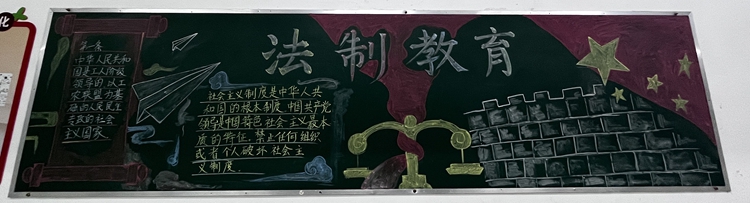 化
法制教育
第一条
中华人民共和
国是工人阶级
领导的,以工
农联盟为基
础的人民民主
专政的社会
主义国家
社会主义制度是中华人共
和国的根本制度,中国共产党
领导是中国特色社会主义最本
质的特征。禁止任何组织
或者个人破坏社会主
义制度。